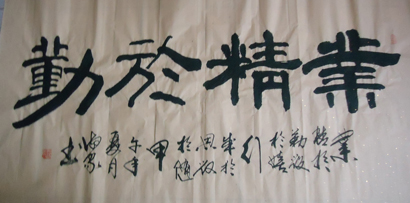 業精於勤
業
精於
勤
於嬉
行
成於
思毀
於隨
甲
午年
夏月
書